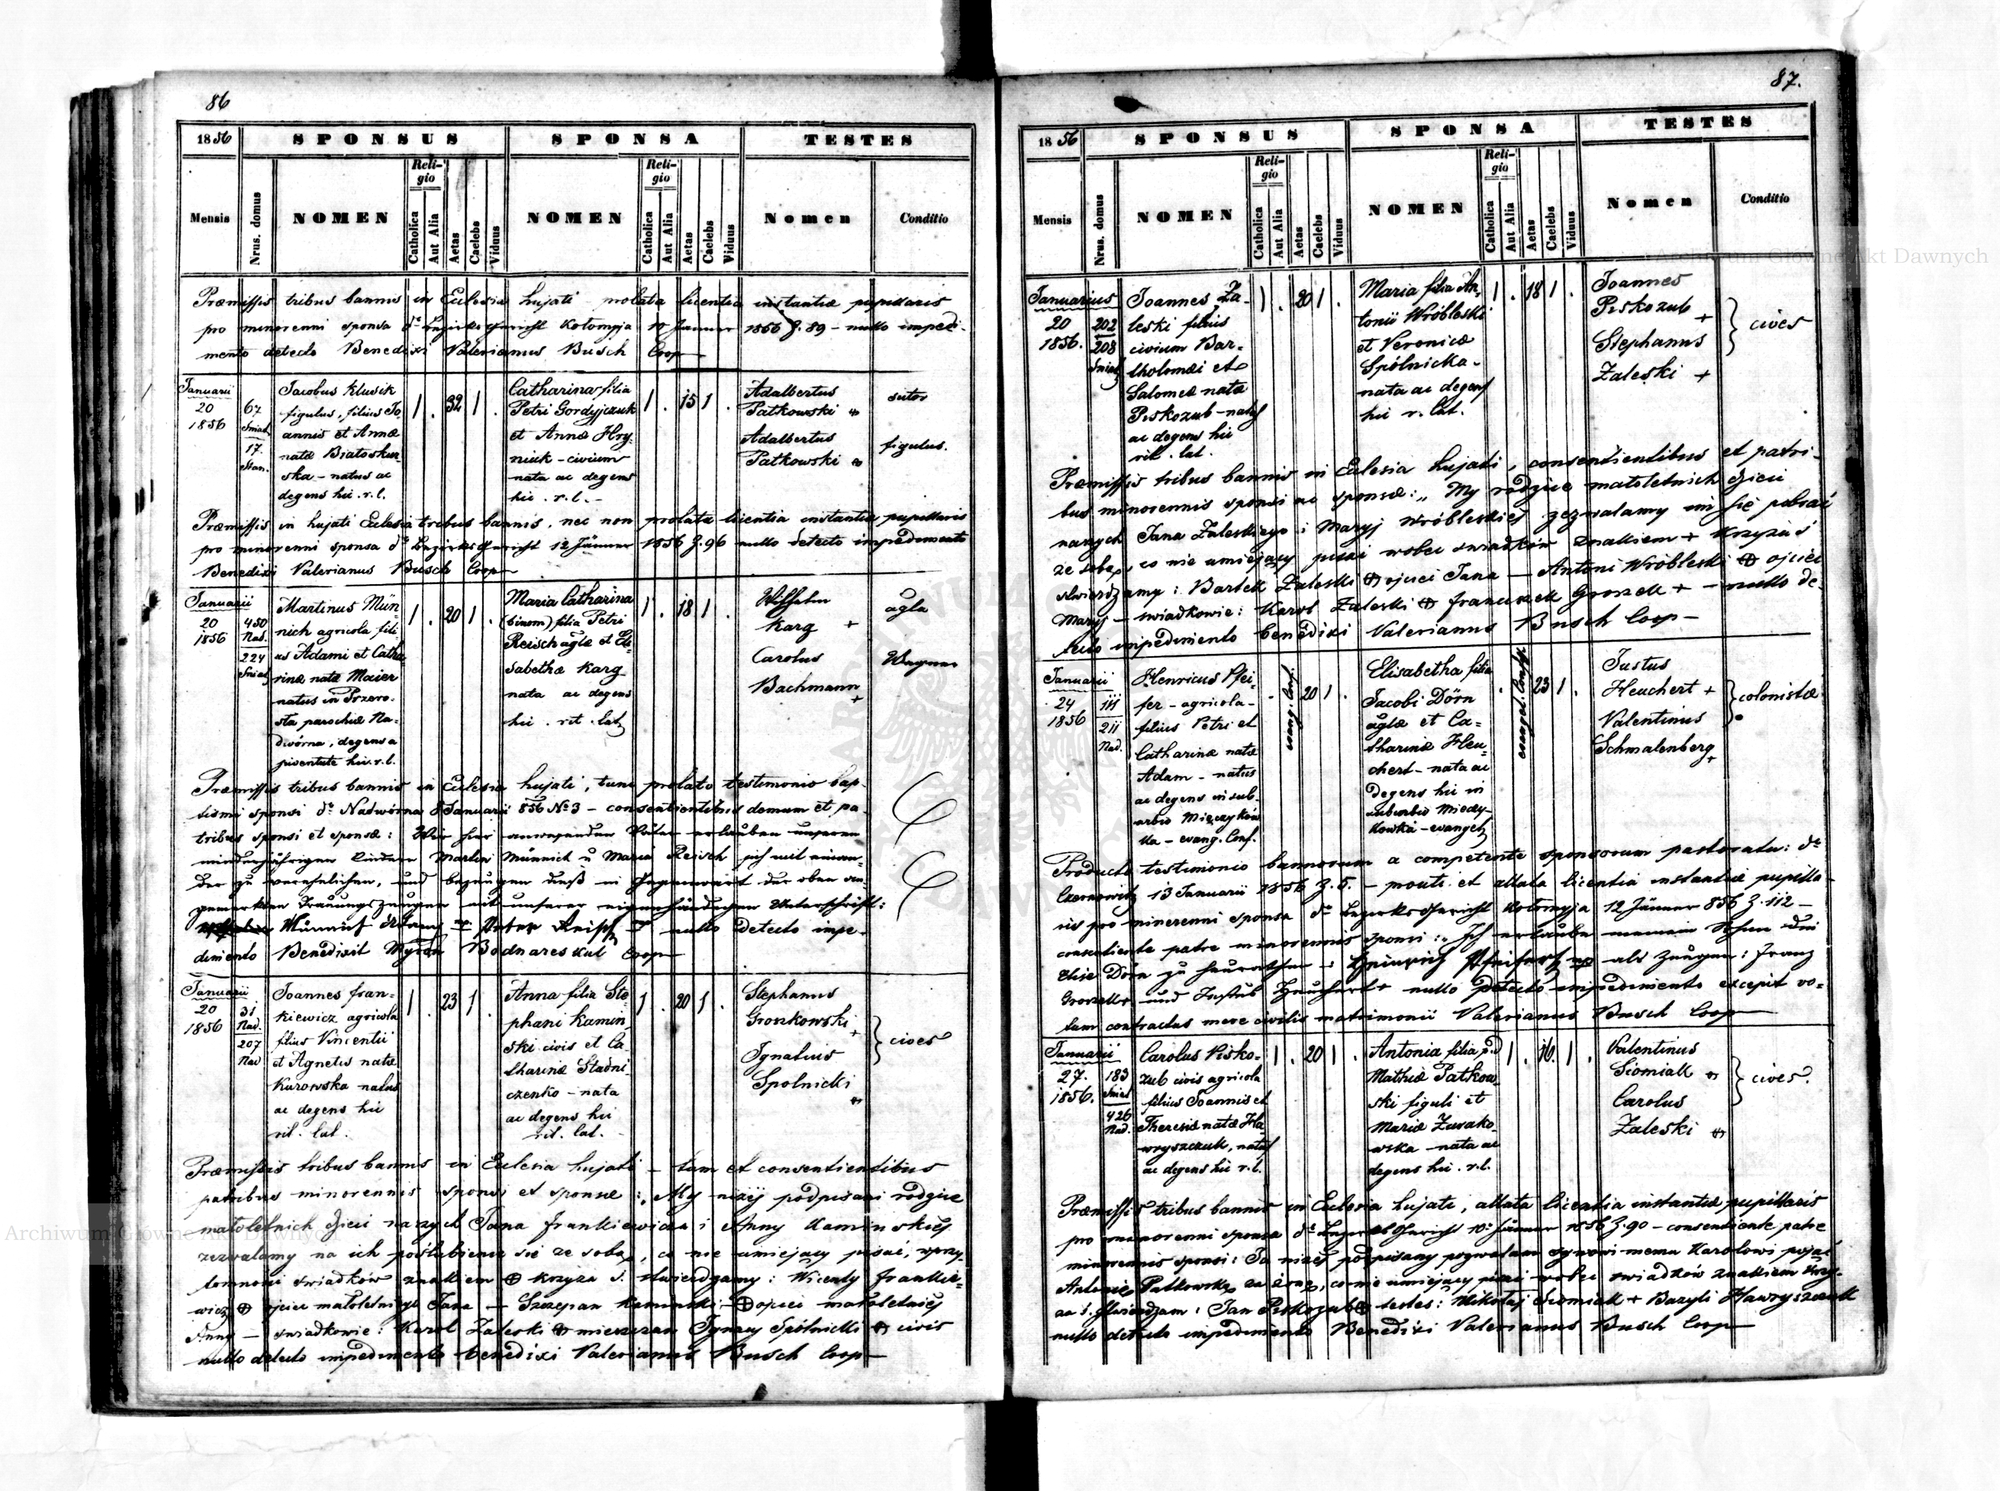 86
1856 SPONSUS SPONSA TESTES
Mensis Nrus. domus NOMEN Religio Catholica Aut Alia Aetas Caelebs Viduus NOMEN Religio Catholica Aut Alia Aetas Caelebs Viduus Nomen Conditio
Præmissis tribus bannis in Eclesia hujati prolata licentia instantiæ pupillaris
pro minorenni sponsa dto Bezirks Gericht Kolomyja 10 Januar 1856 Z. 89 – nullo impedi-
mento detecto Benedixi Valerianus Busch Coop
Januarii
20
1856
67
Sniat.
17
Stan.
Jacobus Klusik
figulus, filius Jo
annis et Annæ
natæ Białoskur
ska – natus ac
degens hic. r. l.
1 . 32 1 .
Catharina filia
Petri Gordyjczuk
et Annæ Hry-
niuk – civium
nata ac degens
hic. r. l. –
1 . 15 1 .
Adalbertus
Patkowski
Adalbertus
Patkowski
sutor
figulus.
Præmissis in hujati Eclesia tribus bannis, nec non prolata licentia instantiæ pupillaris
pro minorenni sponsa dto Bezirks Gericht 12 Jänner 1856 Z. 96 nullo detecto impedimento
Benedixi Valerianus Busch Coop
Januarii
20
1856
450
Nad.
224
Sniat
Martinus Mün
nich agricola fili
us Adami et Catha
rinæ natæ Maier
natus in Przero-
sla parochiæ Na-
dworna, degens a
juventute hic. r. l.
1 . 20 1 .
Maria Catharina
(binom) filia Petri
Reisch aglæ et Eli
sabethæ Karg
nata ac degens
hic. rit. lat.
1 . 18 1 .
Wilhelm
Karg +
Carolus
Bachmann
+
agla
Wagner
Præmissis tribus bannis in Eclesia hujati, tum prolato testimonio bap-
tismi sponsi dto Nadworna 8 Januarii 856 No 3 – consentientibus demum et pa-
tribus sponsi et sponsæ: Wir hier anwesenden Väter erlauben unseren
minderjährigen Kindern Martin Münnich u Maria Reisch sich mit einan-
der zu verehelichen, und bezeugen dieß in Gegenwart der oben an-
gemerkten Trauungszeugen mit unserer eigenhändigen Unterschrift:
Münnich Peter Reisch nullo detecto impe-
dimento Benedixit Myron Bodnareskul Coop
Januarii
20
1856
31
Nad.
207
Nad
Joannes Fran-
kiewicz agricola
filius Vincentii
et Agnetis natæ
Kurowska natus
ac degens hic
rit. lat.
1 . 23 1
Anna filia Ste
phani Kamin
ski civis et Ca
tharinæ Stadni-
czenko – nata
ac degens hic
rit. lat.
1 . 20 1 .
Stephanus
Gronkowski
+
Ignatius
Spolnicki
cives
Præmissis tribus bannis in Eclesia hujati – tum et consentientibus
patribus minorennis sponsi et sponsæ: „My niżej podpisani rodzice
małoletnich dzieci naszych Jana Frankiewicza i Anny Kaminskiej
zezwalamy na ich poślubienie się ze sobą, co nie umiejący pisać, wprzy-
tomności świadków znakiem + krzyża S. stwierdzamy: Wicenty Frankie-
wicz + ojciec małoletniego Jana – Szczepan Kaminski + ojciec małoletniej
Anny – swiadkowie: Karol Zaleski + mieszczan Ignacy Spólnicki + civis
nullo detecto impedimento benedixi Valerianus Busch Coop
87.
1856 SPONSUS SPONSA TESTES
Mensis Nrus. domus NOMEN Religio Catholica Aut Alia Aetas Caelebs Viduus NOMEN Religio Catholica Aut Alia Aetas Caelebs Viduus Nomen Conditio
Januarius
20
1856.
202
208
Sniat
Joannes Za-
leski filius
civium Bar-
tholomæi et
Salomeæ natæ
Piskozub – natus
ac degens hic
rit. lat.
1 . 20 1 .
Maria filia An-
tonii Wróbleski
et Veronicæ
Spólnicka –
nata ac degens
hic r. lat.
1 . 18 1 .
Joannes
Piskozub
+
Stephanus
Zaleski +
cives
Præmissis tribus bannis in Eclesia hujati, consentientibus et patri-
bus minorennis sponsi ac sponsæ: „My rodzice małoletnich dzieci
naszych Jana Zaleskiego i Maryj Wróbleskiej zezwalamy im się pobrać
ze sobą, co nie umiejący pisać wobec swiadków znakiem + krzyża S
stwierdzamy: Bartek Zaleski + ojciec Jana – Antoni Wróbleski + ojciec
Maryj – swiadkowie: Karol Zaleski + Franciszek Groszek + – nullo de-
tecto impedimento benedixi Valerianus Busch Coop –
Januarii
24
1856
111
211
Nad.
Henricus Pfei-
fer – agricola –
filius Petri et
Catharinæ natæ
Adam – natus
ac degens in sub-
urbio Mięczyków
ka – evang. Conf.
. evang. Conf. 20 1 .
Elisabetha filia
Jacobi Dörn
aglæ et Ca-
tharinæ Heu-
chert – nata ac
degens hic in
suburbio Miedzy-
kowka – evangel
. evangel. Conf. 23 1 .
Justus
Heuchert +
Valentinus
Schmalenberg
+
colonistæ
Producto testimonio bannorum a competente sponsorum pastoratu: dto
Czernowitz 13 Januarii 1856 Z. 5. – et allata licentia instantiæ pupilla-
ris pro minorenni sponsa dto Bezirks Gericht Kolomyja 12 Jänner 856 Z. 112 –
consentiente patre minorennis sponsi: Ich erlaube meinem Sohne die
Elise Dörn zu heurathen: Heinrich Pfeifer als Zeugen: Franz
Groszek + und Justus Heuchert + nullo detecto impedimento excepit vo-
tum contractus mere civilis matrimonii Valerianus Busch Coop
Januarii
27.
1856.
183
Sniat
426
Nad.
Carolus Pisko-
zub civis agricola
filius Joannis et
Theresiæ natæ Ha
wryszczuk, natus
ac degens hic r. l.
1 . 20 1 .
Antonia filia pd
Mathiæ Patkow
ski figuli et
Mariæ Zusako-
wska – nata ac
degens hic. r. l.
1 . 16. 1 .
Valentinus
Siomiak
Carolus
Zaleski
cives.
Præmissis tribus bannis in Eclesia hujati, allata licentia instantiæ pupillaris
pro minorenni sponsa dto Bezirks Gericht 10 Jänner 1856 Z. 90 – consentiente patre
minorennis sponsi: Ja niżej podpisany pozwalam synowi memu Karolowi pojąć
Antonię Patkowską za żonę, co nie umiejący pisać wobec swiadków znakiem krzy-
ża S. stwierdzam: Jan Piskozub + testes: Mikołaj Siomiak + Bazyli Hawryszczuk
nullo detecto impedimento Benedixi Valerianus Busch Coop
Archiwum Główne Akt Dawnych
Archiwum Główne Akt Dawnych